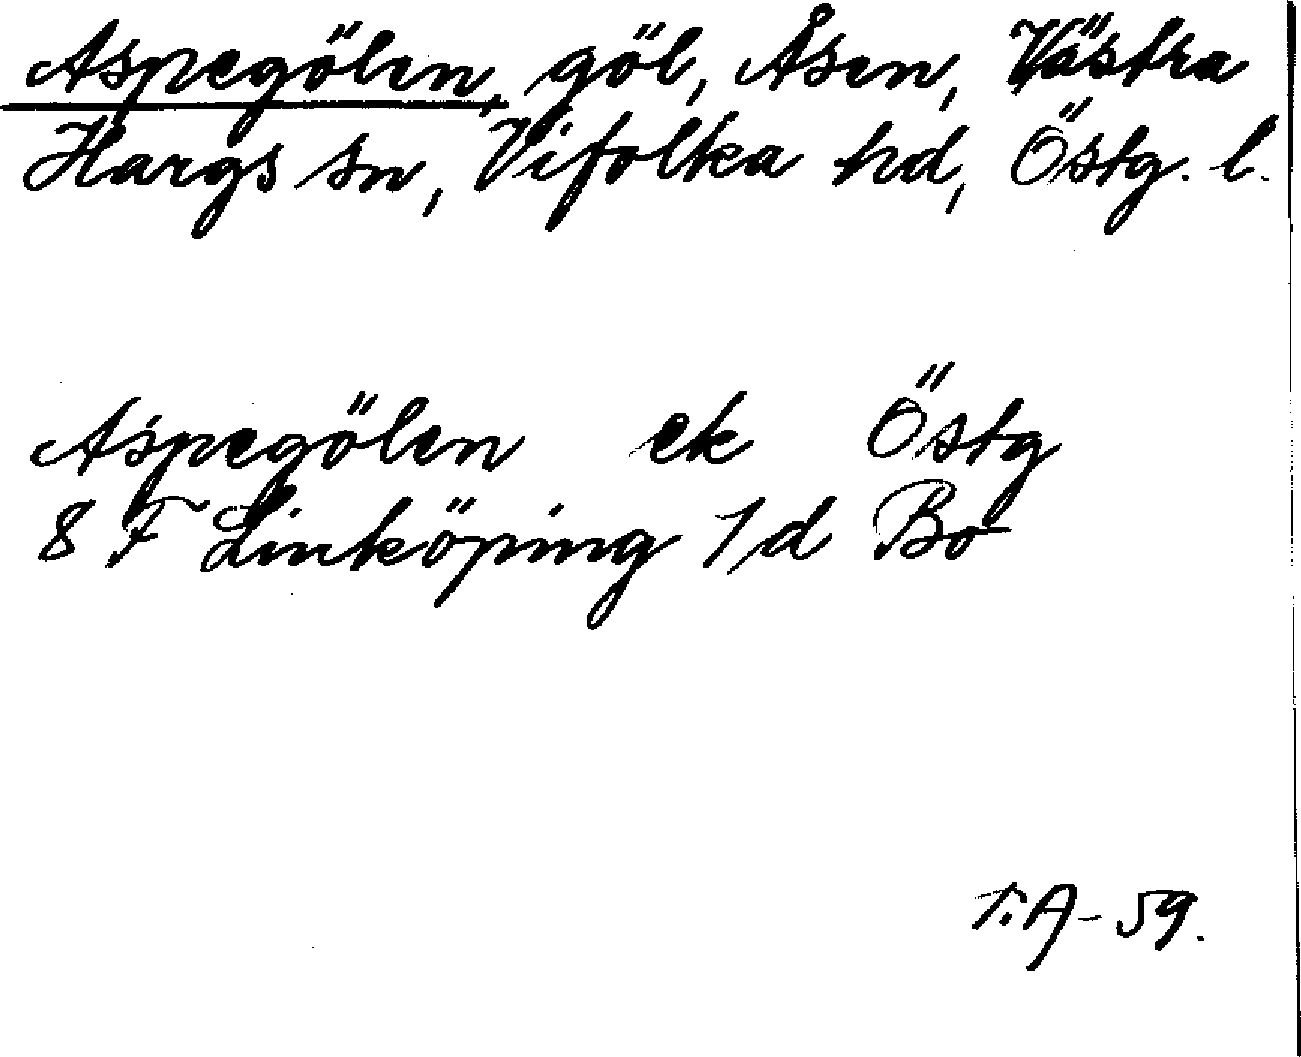 Aspegölen, göl, Åsen, Västra
Hargs sn, Vifolka hd, Östg. l.
Aspegölen ek Östg
8 F Linköping 1d Bo
T.A-59.